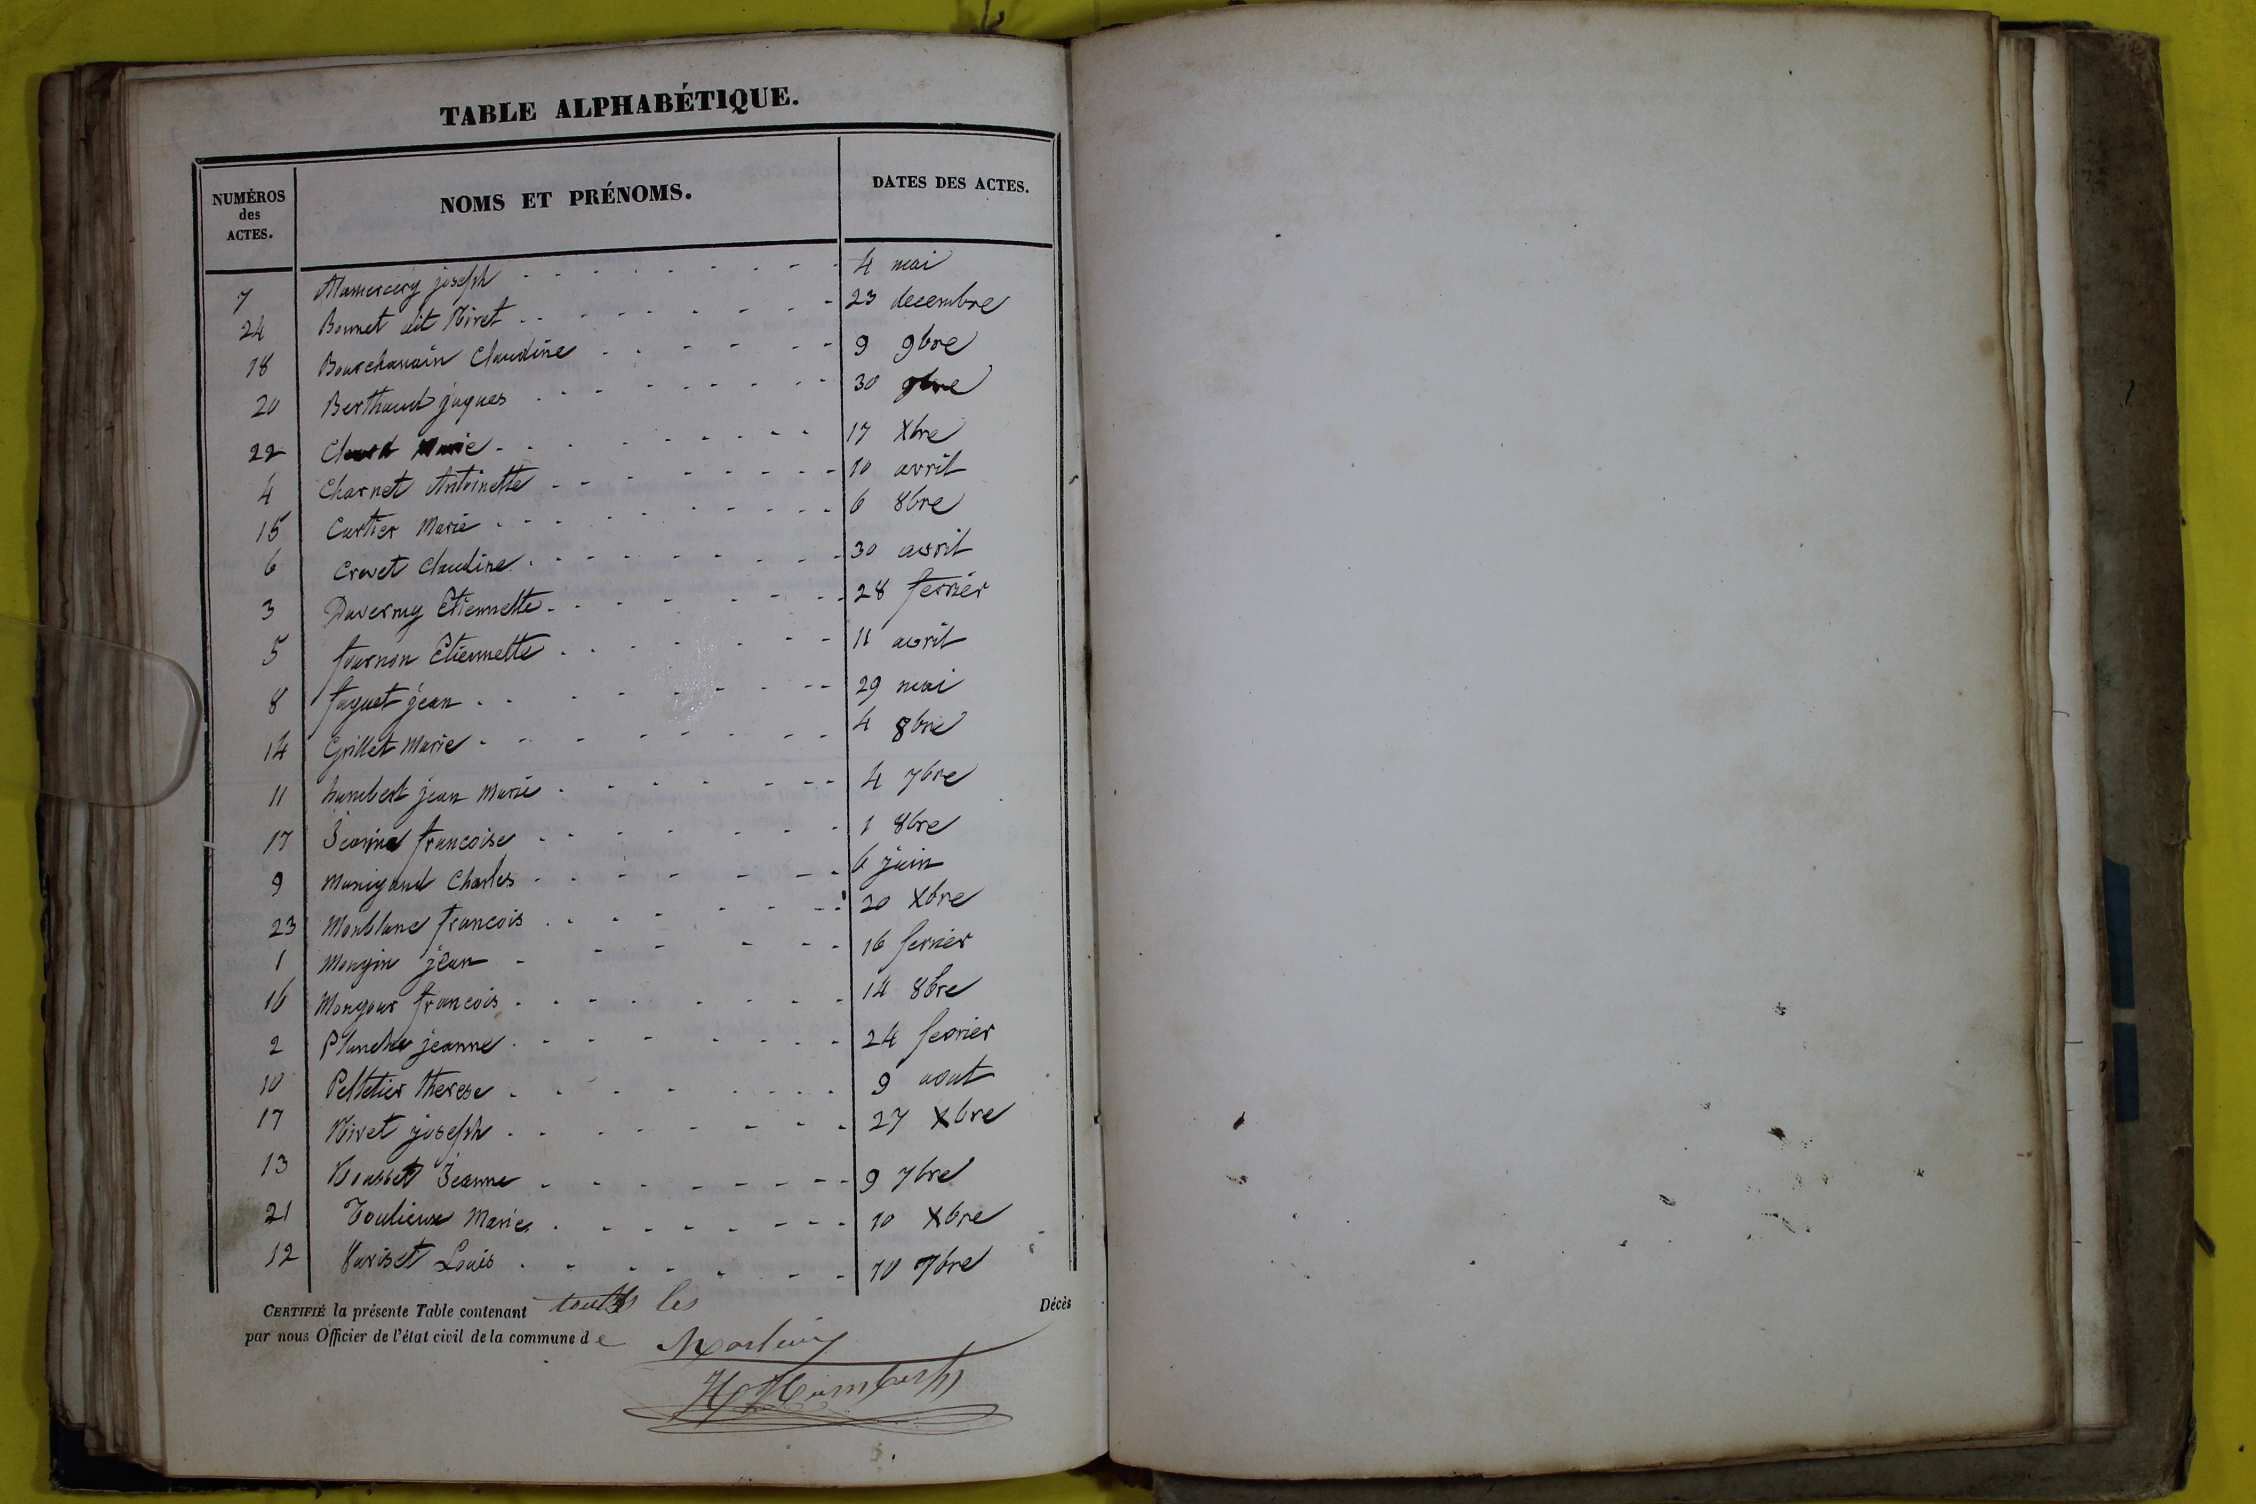 TABLE ALPHABÉTIQUE.
NUMÉROS des ACTES. NOMS ET PRÉNOMS. DATES DES ACTES.
7 joseph 4 mai
24 Bonnet dit Nivet 23 decembre
18 Bourchanain Claudine 9 9bre
20 Berthaud jaques 30 9bre
22 Marie 17 Xbre
4 Charnet Antoinette 10 avril
15 Cartier Marie 6 8bre
6 Crovet Claudine 30 avril
3 Duvernay Etiennette 28 fevrier
5 fournon Etiennette 11 avril
8 faguet jean 29 mai
14 Grillet Marie 4 8bre
11 humbert jean Marie 4 7bre
17 francoise 1 8bre
9 Manigand Charles 6 juin
23 Monblanc francois 20 Xbre
1 Mongin jean 16 fevrier
16 francois 14 8bre
2 Planche jeanne 24 fevrier
10 Pelletier therese 9 aout
17 Nivet joseph 27 Xbre
13 Jeanne 9 7bre
21 Toulieux Marie 10 Xbre
12 Variset Louis 10 7bre
CERTIFIÉ la présente Table contenant les Décès
par nous Officier de l'état civil de la commune de
Humbert